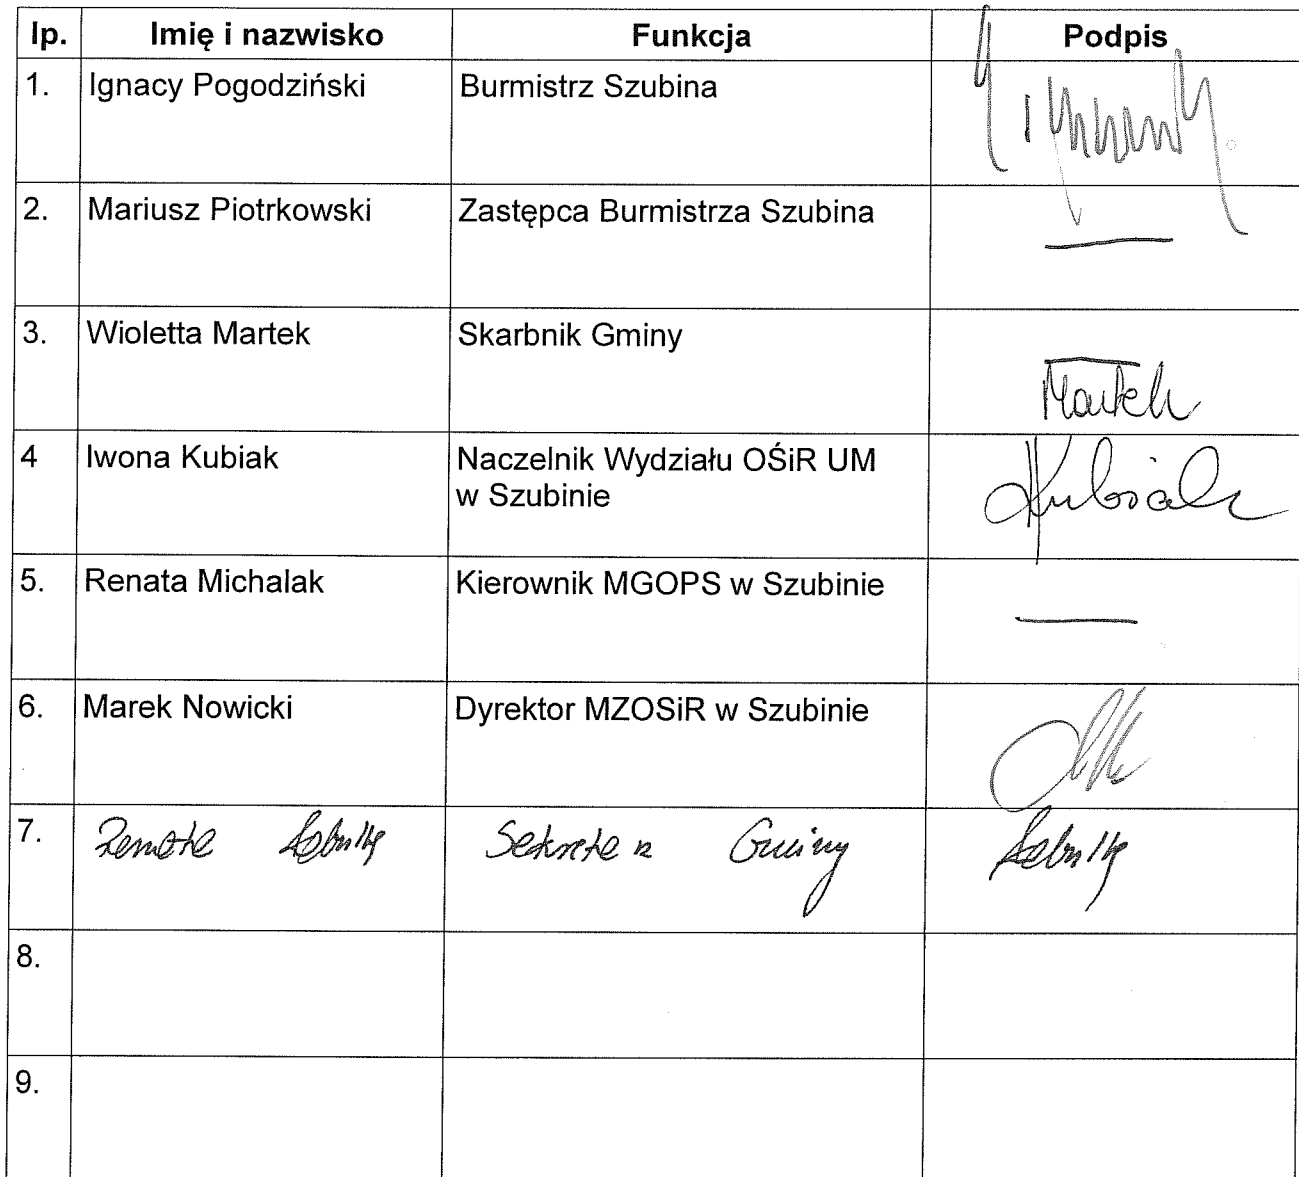 lp. Imię i nazwisko Funkcja Podpis
1. Ignacy Pogodziński Burmistrz Szubina
2. Mariusz Piotrkowski Zastępca Burmistrza Szubina
3. Wioletta Martek Skarbnik Gminy Martek
4 Iwona Kubiak Naczelnik Wydziału OŚiR UM
w Szubinie Kubiak
5. Renata Michalak Kierownik MGOPS w Szubinie
6. Marek Nowicki Dyrektor MZOSiR w Szubinie
7. Renata Sekretarz Gminy
8.
9.